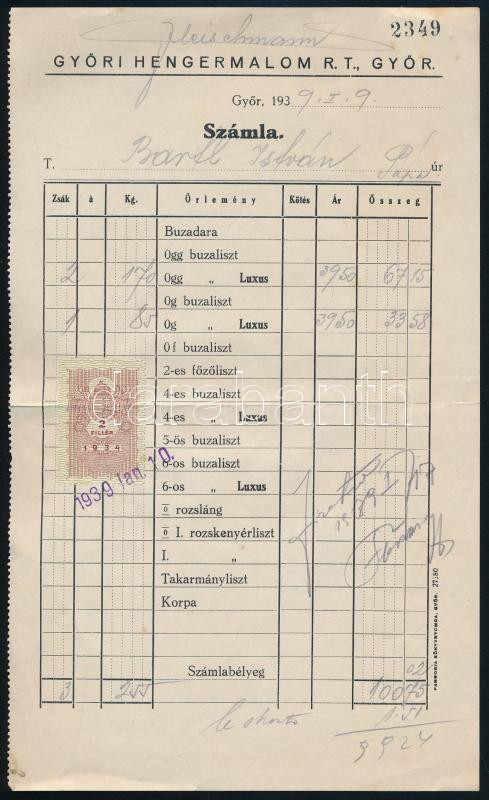 Fleischmann
2349
GYŐRI HENGERMALOM R. T., GYŐR.
Győr, 1939. I. 9.
Számla.
T. Bartl István Pápa úr
Zsák à Kg. Őrlemény Kötés Ár Összeg
Buzadara
0gg buzaliszt
2 170 0gg „ Luxus 3950 67 15
0g buzaliszt
1 85 0g „ Luxus 3950 33 58
0f buzaliszt
2-es főzőliszt
4-es buzaliszt
4-es „ Luxus
5-ös buzaliszt
6-os buzaliszt
6-os „ Luxus
0/0 rozsláng
0/0 I. rozskenyérliszt
I. „
Takarmányliszt
Korpa
Számlabélyeg 02
3 255 100 75
le skonto 1.51
99 24
2
FILLÉR
1934
1939 Jan. 10.
PANNONIA KÖNYVNYOMDA, GYŐR, 27:80
darabanth